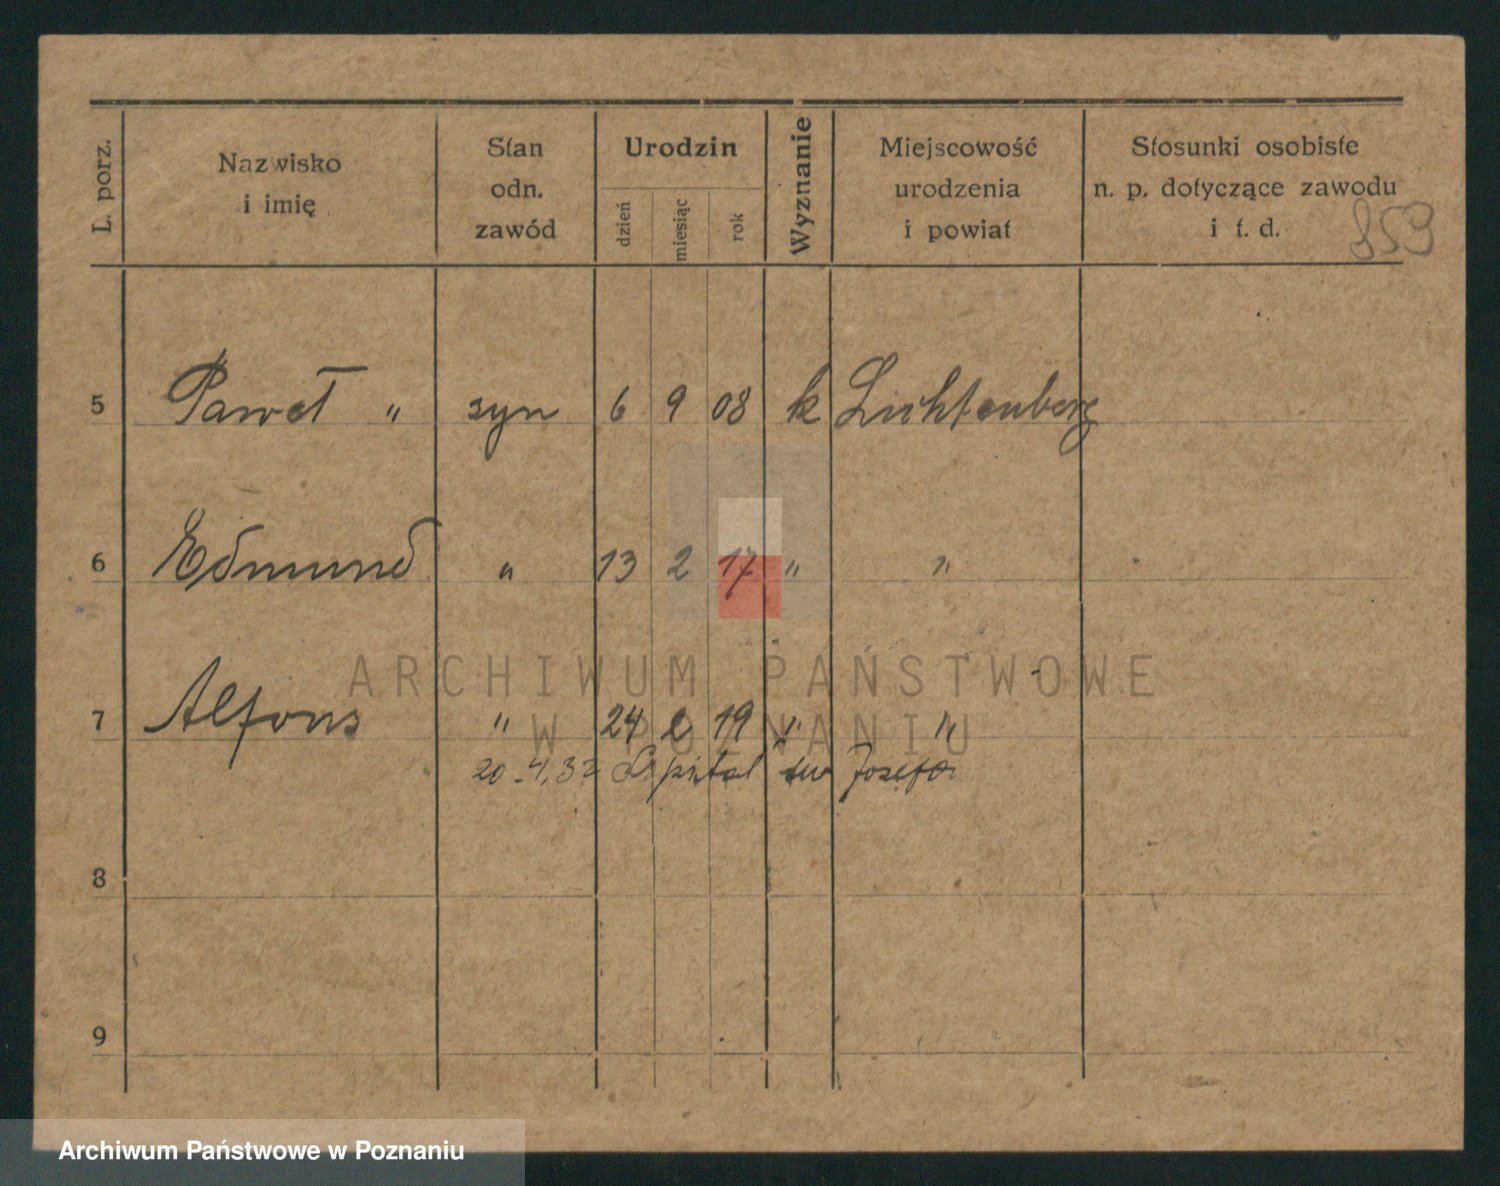 L. porz. Nazwisko i imię Stan odn. zawód Urodzin dzień miesiąc rok Wyznanie Miejscowość urodzenia i powiat Stosunki osobiste n. p. dotyczące zawodu i t. d.
853
5 Paweł " syn 6 9 08 k Lichtenberg
6 Edmund " 13 2 17 " "
7 Alfons " 24 2 19 " "
20.4.32 Szpital św Josefa
8
9
ARCHIWUM PAŃSTWOWE
W POZNANIU
Archiwum Państwowe w Poznaniu